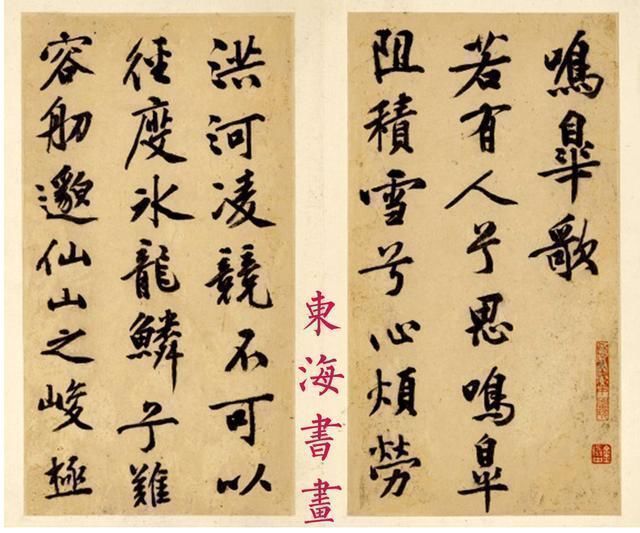 鳴皐歌
若有人兮思鳴皐
阻積雪兮心煩勞
洪河凌競不可以
徑度冰龍鱗兮難
容舠邈仙山之峻極
東海書畫